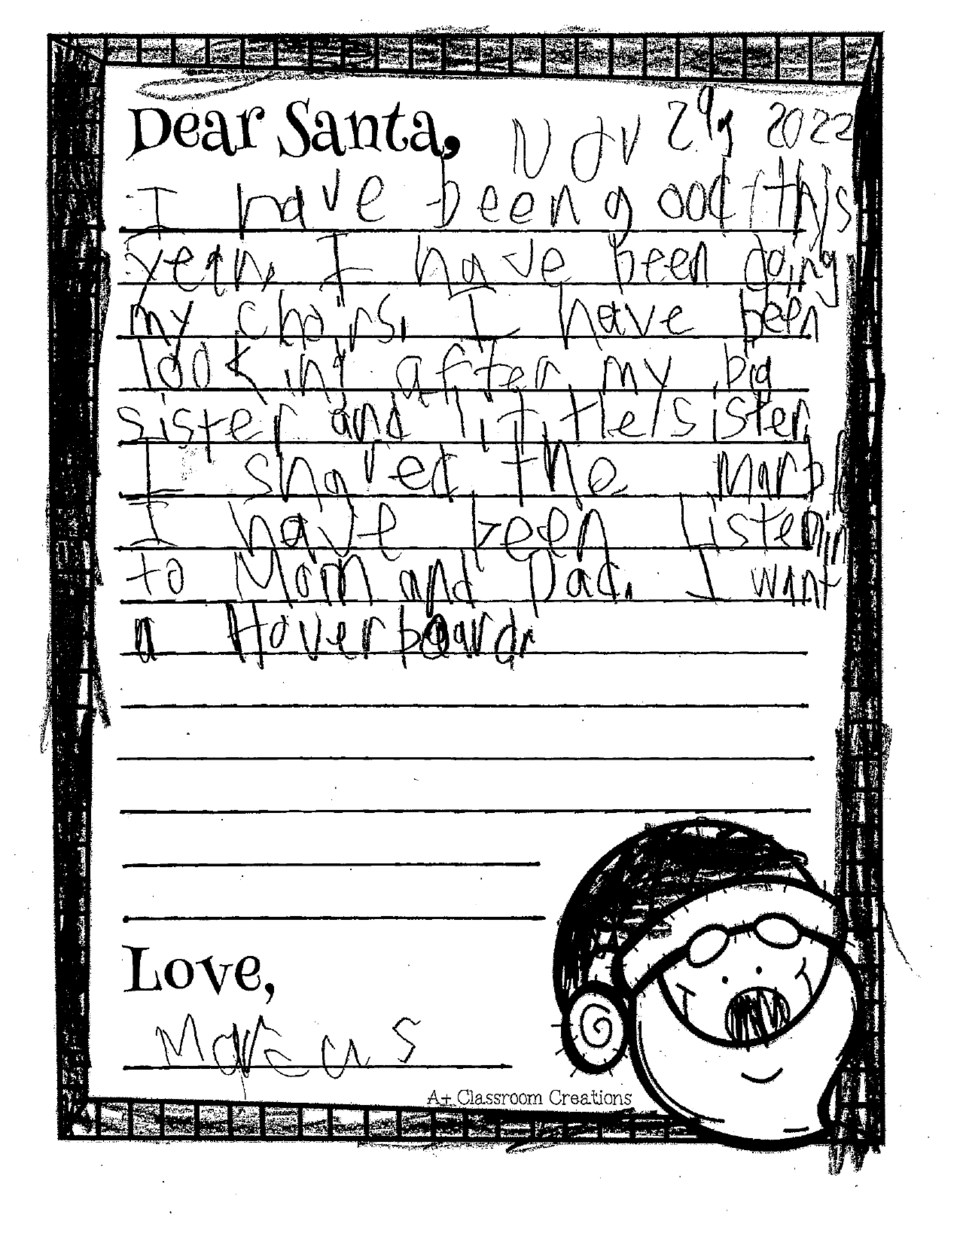 Dear Santa, Nov 29, 2022
I have been good this
year. I have been doing
my choirs. I have been
looking after my big
sister and little sister.
I shared the
I have been Listening
to Mom and Dad. I want
a Hoverboard.
Love,
Marcus
A+ Classroom Creations